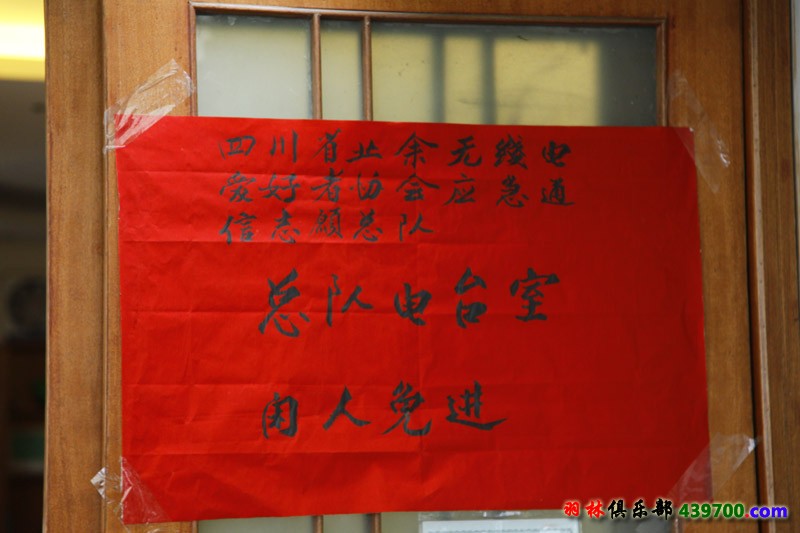 四川省业余无线电
爱好者协会应急通
信志愿总队
总队电台室
闲人免进
羽林俱乐部 439700.com